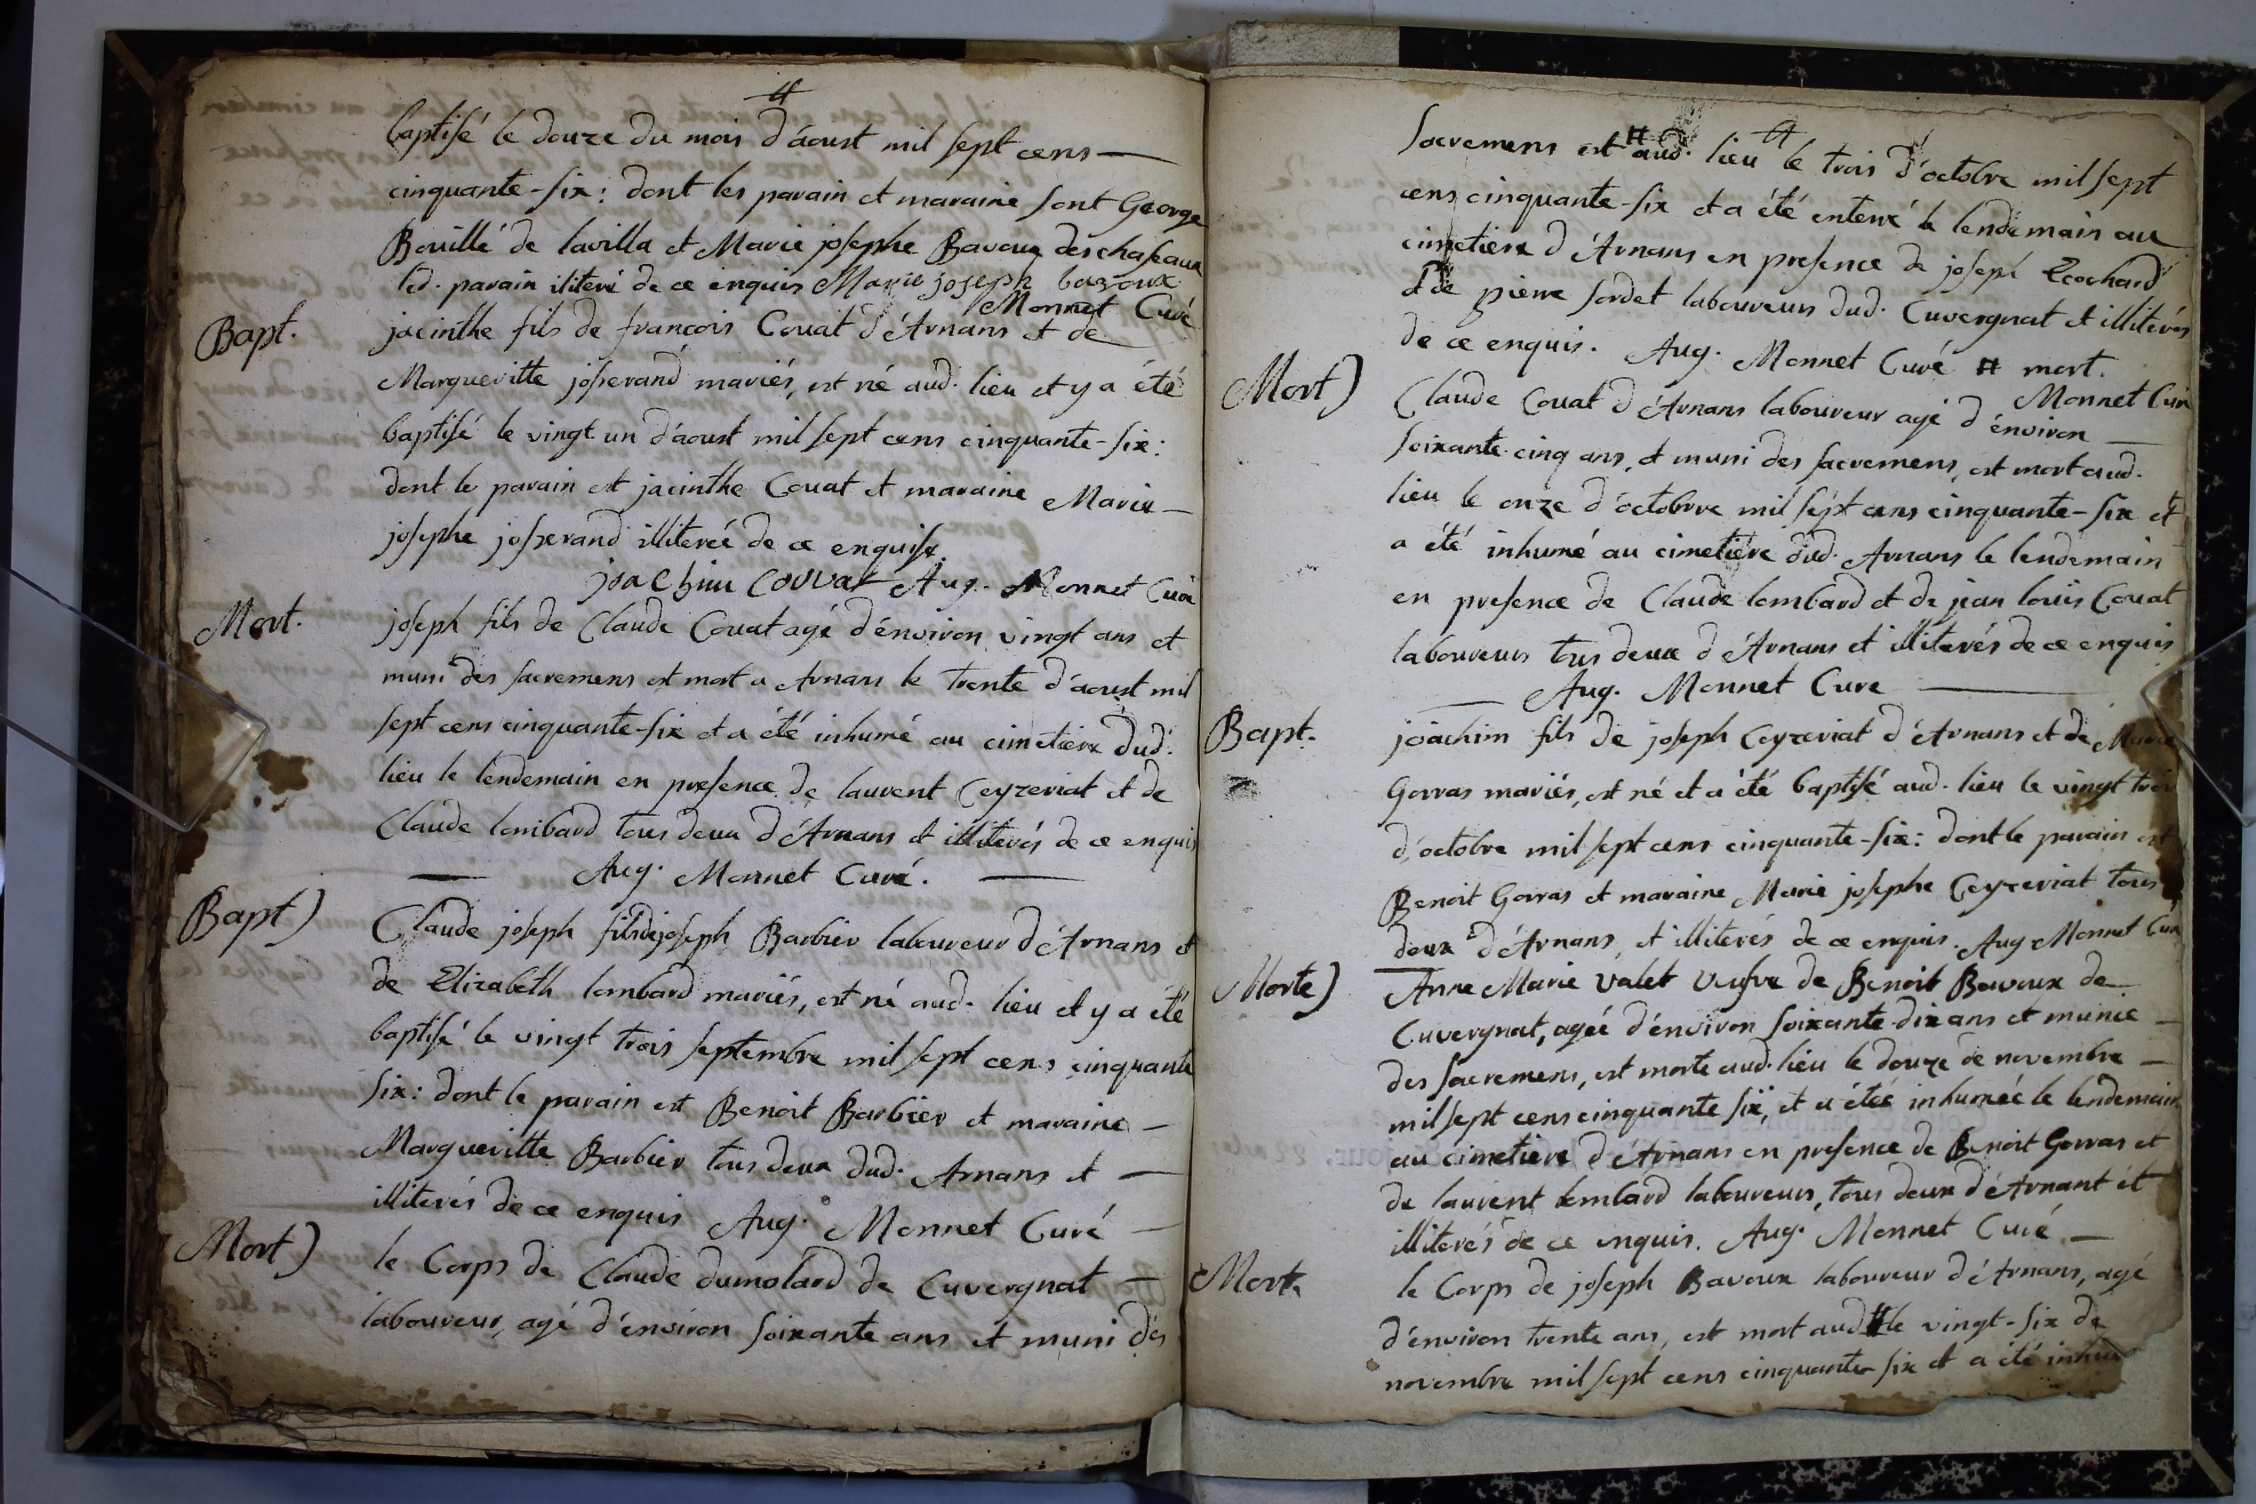 baptisé le douze du mois d'áoust mil sept cens —
cinquante-six: dont les parain et maraine sont George
Bouillé de lavilla et Marie josephe Bavoux des chaseaux
led. parain iliteré de ce enquis Marie joseph bavoux
Monnet Curé
Bapt.
jacinthe fils de françois Couat d'Arnans et de
Margueritte josserand mariés, est né aud. lieu et y a été
baptisé le vingt un d'áoust mil sept cens cinquante-six:
dont le parain est jacinthe Couat et maraine Marie —
josephe josserand illiterée de ce enquise.
joachim couvat Aug. Monnet Curé
Mort.
joseph fils de Claude Couat agé d'environ vingt ans et
muni des sacremens est mort a Arnans le trente d'áoust mil
sept cens cinquante-six et a été inhumé au cimetiere dud.
lieu le lendemain en presence de laurent Ceyzeriat et de
Claude lombard tous deux d'Arnans et illiterés de ce enquis
Aug. Monnet Curé.
Bapt)
Claude joseph fils de joseph Barbier laboureur d'Arnans et
de Elizabeth lombard mariés, est né aud. lieu et y a été
baptisé le vingt trois septembre mil sept cens cinquante
six: dont le parain est Benoit Barbier et maraine —
Margueritte Barbier tous deux dud. Arnans et —
illiterés de ce enquis Aug. Monnet Curé —
Mort)
le Corps de Claude dumolard de Cuvergnat —
laboureur, agé d'environ soixante ans et muni des
sacremens est # aud. lieu le trois d'octobre mil sept
cens cinquante-six et a été enterré le lendemain au
cimetiere d'Arnans en presence de joseph Ecochard
de pierre sordet laboureurs dud. Cuvergnat et illiterés
de ce enquis. Aug. Monnet Curé # mort.
Monnet Curé
Mort)
Claude Couat d'Arnans laboureur agé d'environ —
soixante-cinq ans, et muni des sacremens, est mort aud.
lieu le onze d'octobre mil sept cens cinquante-six et
a été inhumé au cimetiere dud. Arnans le lendemain
en presence de Claude lombard et de jean loüis Couat
laboureurs tous deux d'Arnans et illiterés de ce enquis
Aug. Monnet Cure
Bapt.
joachim fils de joseph Ceyzeriat d'Arnans et de Marie
Gorras mariés, est né et a été baptisé aud. lieu le vingt trois
d'octobre mil sept cens cinquante-six: dont le parain est
Benoit Gorras et maraine Marie josephe Ceyzeriat tous
deux d'Arnans, et illiterés de ce enquis. Aug Monnet Curé
Morte)
Anne Marie valet veufve de Benoit Bavoux de
Cuvergnat, agée d'environ soixante-dix ans et munie —
des sacremens, est morte aud. lieu le douze de novembre —
mil sept cens cinquante six, et a étée inhumée le lendemain
au cimetiere d'Arnans en presence de Benoit Gorras et
de laurent lombard laboureurs, tous deux d'Arnant et
illiterés de ce enquis. Aug. Monnet Curé —
Mort.
le Corps de joseph Bavoux laboureur d'Arnans, agé
d'environ trente ans, est mort aud # le vingt-six de
novembre mil sept cens cinquante six et a été inhu